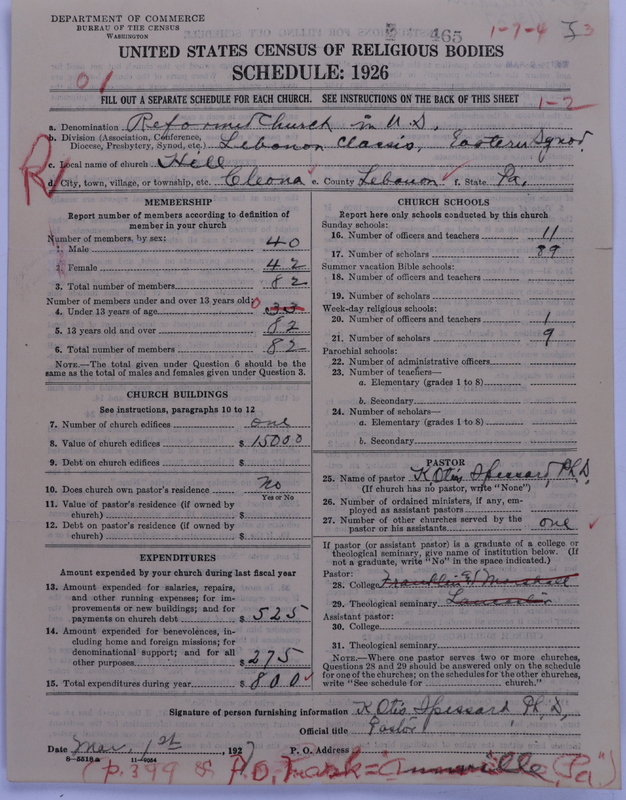 DEPARTMENT OF COMMERCE
BUREAU OF THE CENSUS
WASHINGTON
465
1-7-4
53
UNITED STATES CENSUS OF RELIGIOUS BODIES
SCHEDULE: 1926
01
FILL OUT A SEPARATE SCHEDULE FOR EACH CHURCH. SEE INSTRUCTIONS ON THE BACK OF THIS SHEET
1-2
a. Denomination Reformed Church in U.S.
b. Division (Association, Conference, Diocese, Presbytery, Synod, etc.) Lebanon Classis, Eastern Synod.
c. Local name of church Hill
R
d. City, town, village, or township, etc. Cleona e. County Lebanon f. State Pa.
MEMBERSHIP
Report number of members according to definition of
member in your church
Number of members, by sex:
1. Male 40
2. Female 42
3. Total number of members 82
Number of members under and over 13 years old:
4. Under 13 years of age 0 33
5. 13 years old and over 82
6. Total number of members 82
NOTE.—The total given under Question 6 should be
same as the total of males and females given under Question 3.
CHURCH BUILDINGS
See instructions, paragraphs 10 to 12
7. Number of church edifices one
8. Value of church edifices $ 15000
9. Debt on church edifices $
10. Does church own pastor's residence No
Yes or No
11. Value of pastor's residence (if owned by
church) $
12. Debt on pastor's residence (if owned by
church) $
EXPENDITURES
Amount expended by your church during last fiscal year
13. Amount expended for salaries, repairs,
and other running expenses; for im-
provements or new buildings; and for
payments on church debt $ 525
14. Amount expended for benevolences, in-
cluding home and foreign missions; for
denominational support; and for all
other purposes $ 275
15. Total expenditures during year $ 800
CHURCH SCHOOLS
Report here only schools conducted by this church
Sunday schools:
16. Number of officers and teachers 11
17. Number of scholars 89
Summer vacation Bible schools:
18. Number of officers and teachers
19. Number of scholars
Week-day religious schools:
20. Number of officers and teachers 1
21. Number of scholars 9
Parochial schools:
22. Number of administrative officers
23. Number of teachers—
a. Elementary (grades 1 to 8)
b. Secondary
24. Number of scholars—
a. Elementary (grades 1 to 8)
b. Secondary
PASTOR
25. Name of pastor K Otis Spessard, Ph.D,
(If church has no pastor, write "None")
26. Number of ordained ministers, if any, em-
ployed as assistant pastors
27. Number of other churches served by the
pastor or his assistants one
If pastor (or assistant pastor) is a graduate of a college or
theological seminary, give name of institution below. (If
not a graduate, write "No" in the space indicated.)
Pastor:
28. College Franklin & Marshall
29. Theological seminary Lancaster
Assistant pastor:
30. College
31. Theological seminary
NOTE.—Where one pastor serves two or more churches,
Questions 28 and 29 should be answered only on the schedule
for one of the churches; on the schedules for the other churches,
write "See schedule for church."
Signature of person furnishing information K Otis Spessard, Ph, D,
Official title Pastor
Date Mar. 1st, 1927 P. O. Address
8-5518a 11-9554
(p. 399 & P.O. = Annville, Pa")